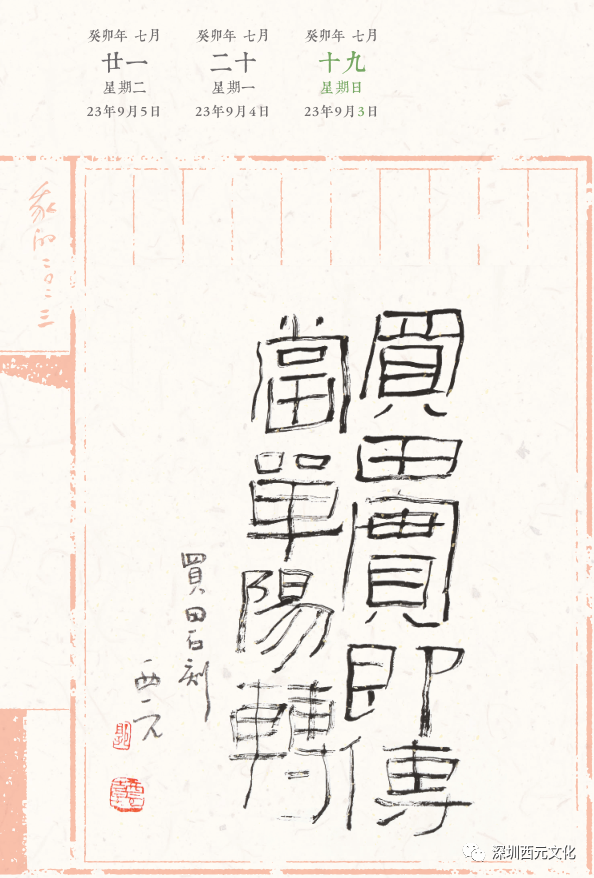 癸卯年 七月
十九
星期日
23年9月3日
癸卯年 七月
二十
星期一
23年9月4日
癸卯年 七月
廿一
星期二
23年9月5日
買田實即傳
當單陽轉
買田石刻
西元
深圳西元文化